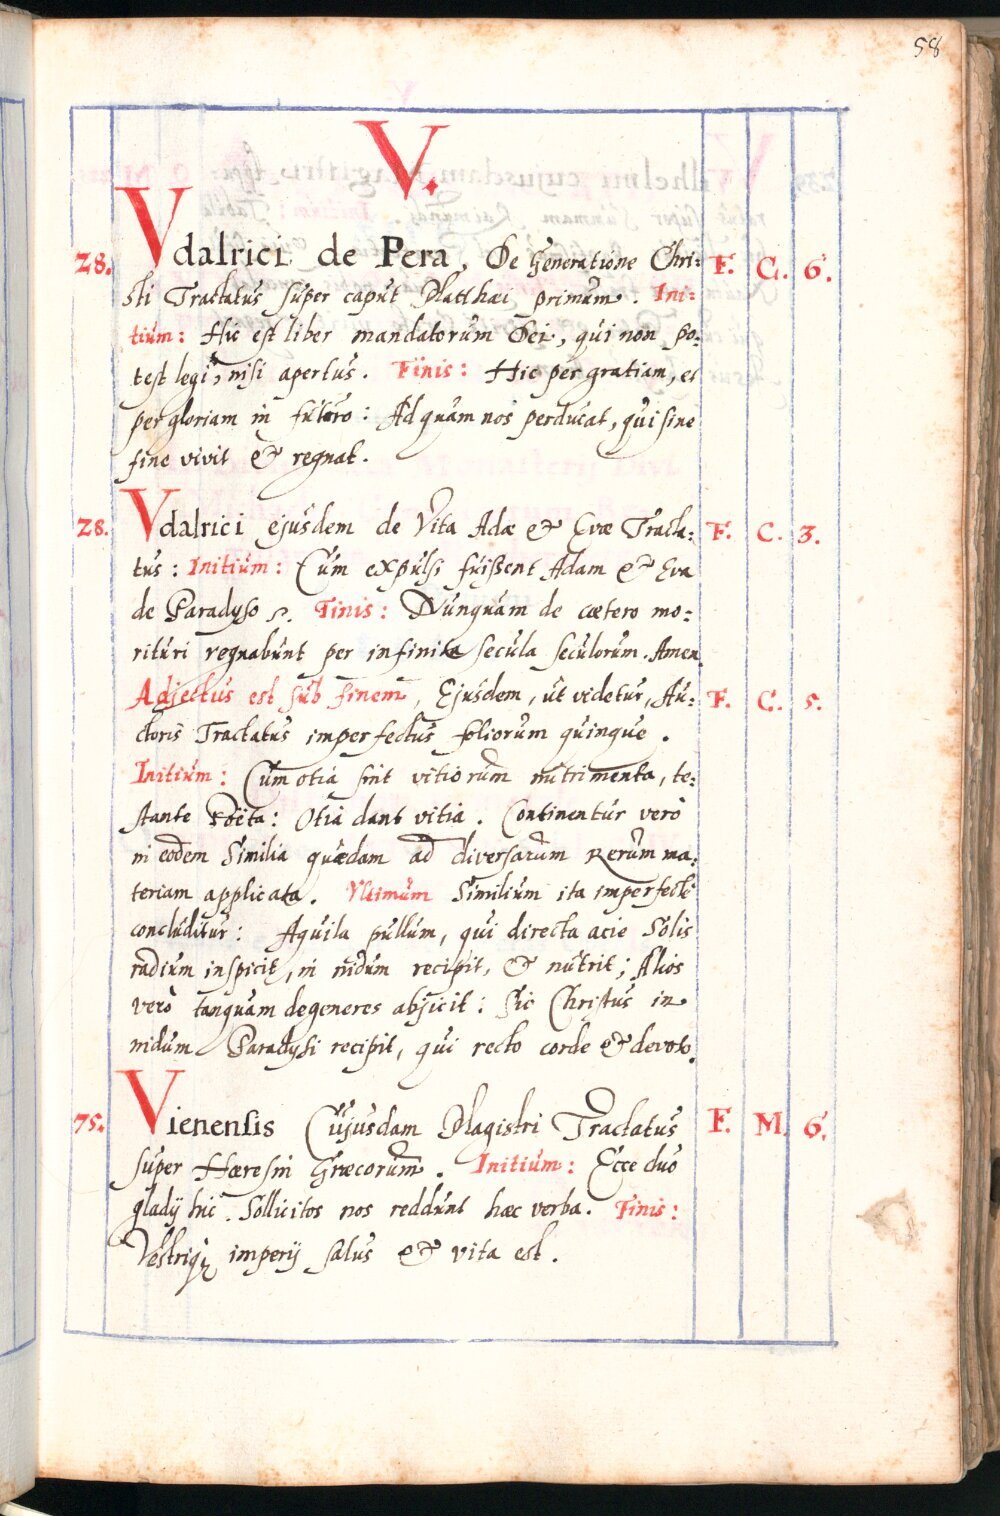 58
V.
28. Vdalrici de Pera, De Generatione Chri: F. C. 6.
sti Tractatus super caput Matthæi primum. Ini:
tium: Hic est liber mandatorum Dei, qui non po:
test legi, nisi apertus. Finis: Hic per gratiam, et
per gloriam in futuro: Ad quam nos perducat, qui sine
fine vivit & regnat.
28. Vdalrici ejusdem de Vita Adæ & Evæ Tracta: F. C. 3.
tus: Initium: Cum expulsi fuissent Adam & Eva
de Paradyso Finis: Nunquam de cætero mo:
rituri regnabunt per infinita secula seculorum. Amen
Adjectus est sub finem, Ejusdem, ut videtur, Au: F. C. 5.
ctoris Tractatus imperfectus foliorum quinque.
Initium: Cum otia sint vitiorum nutrimenta, te:
stante Poëta: Otia dant vitia. Continentur verò
in eodem Similia quædam ad diversarum Rerum ma:
teriam applicata. Vltimum Similium ita imperfectè
concluditur: Aquila pullum, qui directa acie Solis
radium inspicit, in nidum recipit, & nutrit; Alios
verò tanquam degeneres abjicit: Sic Christus in
nidum Paradysi recipit, qui recto corde & devoto.
75. Vienensis Cujusdam Magistri Tractatus F. M. 6.
super Hæresin Græcorum. Initium: Ecce duo
gladij hic. Sollicitos nos reddunt hæc verba. Finis:
imperij salus & vita est.